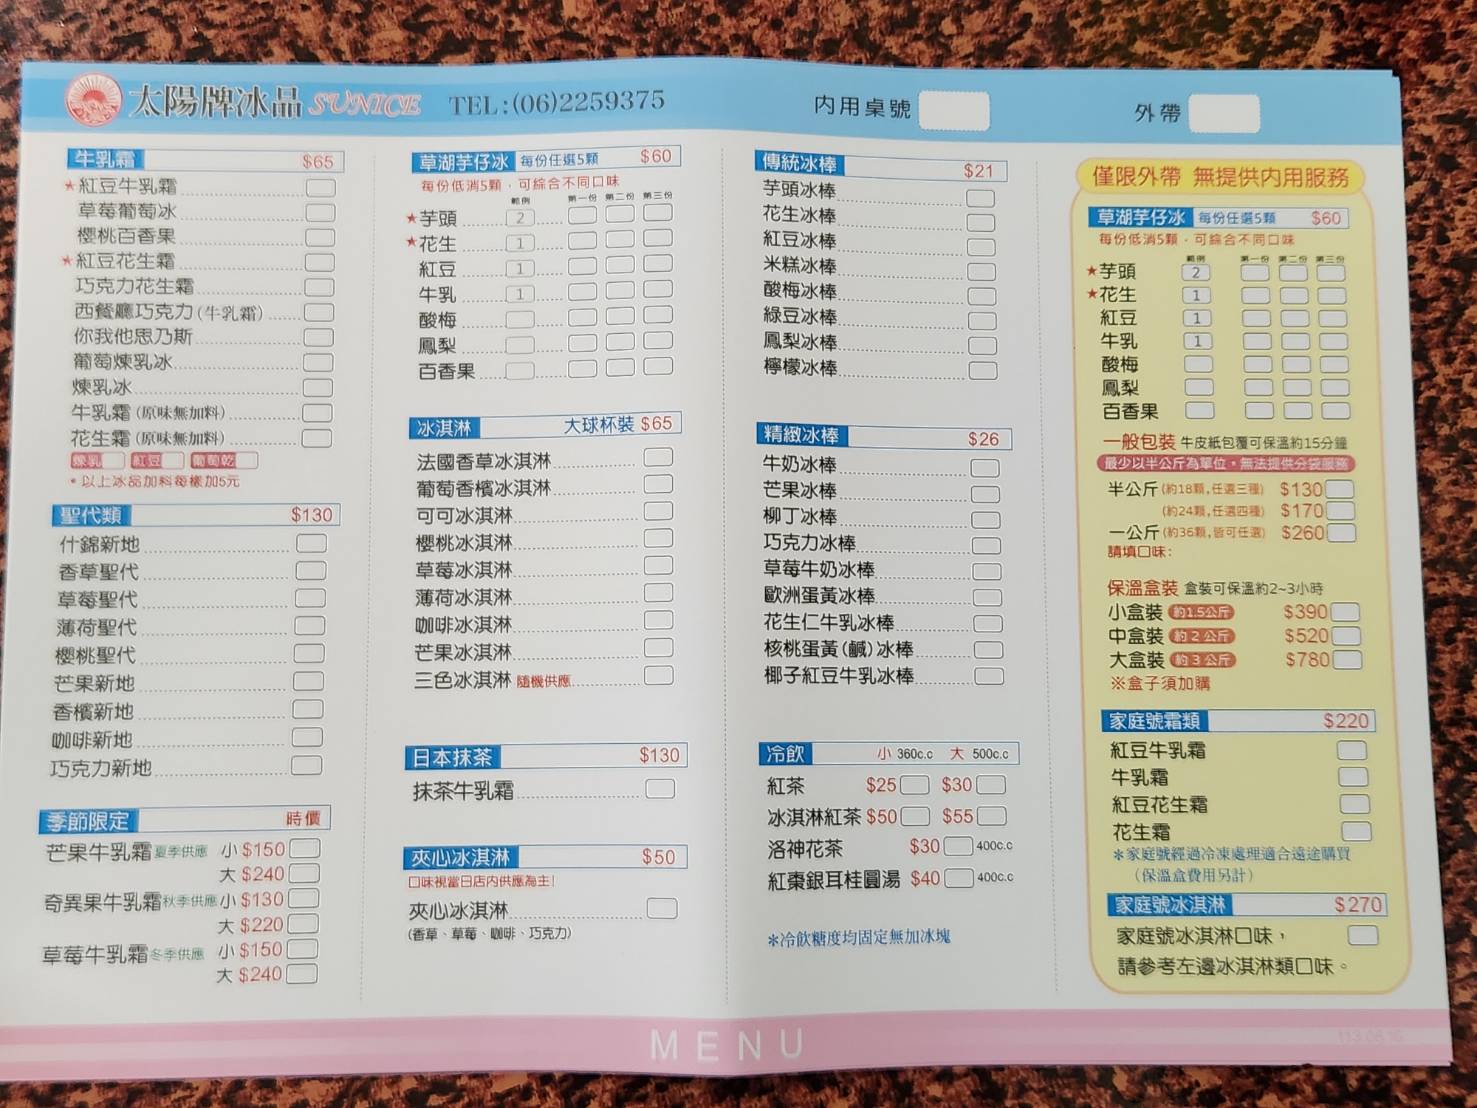 太陽牌冰品 SUNICE TEL:(06)2259375 內用桌號 外帶
牛乳霜 $65
★紅豆牛乳霜
草莓葡萄冰
櫻桃百香果
★紅豆花生霜
巧克力花生霜
西餐廳巧克力(牛乳霜)
你我他思乃斯
葡萄煉乳冰
煉乳冰
牛乳霜(原味無加料)
花生霜(原味無加料)
煉乳 紅豆 葡萄乾
•以上冰品加料每樣加5元
聖代類 $130
什錦新地
香草聖代
草莓聖代
薄荷聖代
櫻桃聖代
芒果新地
香檳新地
咖啡新地
巧克力新地
季節限定 時價
芒果牛乳霜夏季供應 小 $150
大 $240
奇異果牛乳霜秋季供應 小 $130
大 $220
草莓牛乳霜冬季供應 小 $150
大 $240
草湖芋仔冰 每份任選5顆 $60
每份低消5顆，可綜合不同口味
範例 第一份 第二份 第三份
★芋頭 2
★花生 1
紅豆 1
牛乳 1
酸梅
鳳梨
百香果
冰淇淋 大球杯裝 $65
法國香草冰淇淋
葡萄香檳冰淇淋
可可冰淇淋
櫻桃冰淇淋
草莓冰淇淋
薄荷冰淇淋
咖啡冰淇淋
芒果冰淇淋
三色冰淇淋 隨機供應
日本抹茶 $130
抹茶牛乳霜
夾心冰淇淋 $50
口味視當日店內供應為主!
夾心冰淇淋
(香草、草莓、咖啡、巧克力)
傳統冰棒 $21
芋頭冰棒
花生冰棒
紅豆冰棒
米糕冰棒
酸梅冰棒
綠豆冰棒
鳳梨冰棒
檸檬冰棒
精緻冰棒 $26
牛奶冰棒
芒果冰棒
柳丁冰棒
巧克力冰棒
草莓牛奶冰棒
歐洲蛋黃冰棒
花生仁牛乳冰棒
核桃蛋黃(鹹)冰棒
椰子紅豆牛乳冰棒
冷飲 小 360c.c 大 500c.c
紅茶 $25 $30
冰淇淋紅茶 $50 $55
洛神花茶 $30 400c.c
紅棗銀耳桂圓湯 $40 400c.c
＊冷飲糖度均固定無加冰塊
僅限外帶 無提供內用服務
草湖芋仔冰 每份任選5顆 $60
每份低消5顆，可綜合不同口味
範例 第一份 第二份 第三份
★芋頭 2
★花生 1
紅豆 1
牛乳 1
酸梅
鳳梨
百香果
一般包裝 牛皮紙包覆可保溫約15分鐘
最少以半公斤為單位，無法提供分袋服務
半公斤(約18顆,任選三種) $130
(約24顆,任選四種) $170
一公斤(約36顆,皆可任選) $260
請填口味:
保溫盒裝 盒裝可保溫約2~3小時
小盒裝 約1.5公斤 $390
中盒裝 約2公斤 $520
大盒裝 約3公斤 $780
※盒子須加購
家庭號霜類 $220
紅豆牛乳霜
牛乳霜
紅豆花生霜
花生霜
＊家庭號經過冷凍處理適合遠途購買
(保溫盒費用另計)
家庭號冰淇淋 $270
家庭號冰淇淋口味，
請參考左邊冰淇淋類口味。
MENU